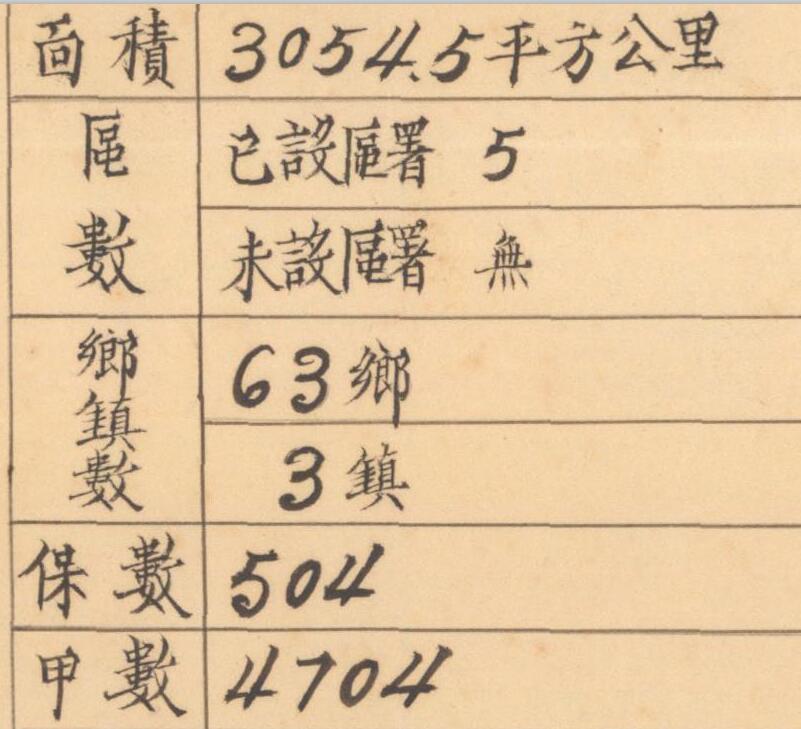 面積 3054.5平方公里
區數 已設區署 5
未設區署 無
鄉鎮數 63鄉
3鎮
保數 504
甲數 4704